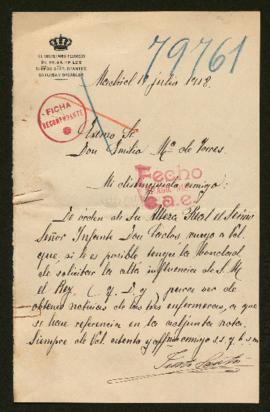 79761
FICHA
RECOMENDANTE
Madrid 1º julio 1918.
Excmo Sr.
Don Emilio Mª de Torres
Fecho
Mi distinguido amigo:
De órden de Su Alteza Real el Sermo
Señor Infante Don Carlos, ruego a Vd
que, si le es posible tenga la bondad
de solicitar la alta influencia de S. M.
el Rey, (q. D. g.) para ver de
obtener noticias de las tres enfermeras, a que
se hace referencia en la adjunta nota.
Siempre de Vd. atento y affmo amigo s.s. q. b. s. m.